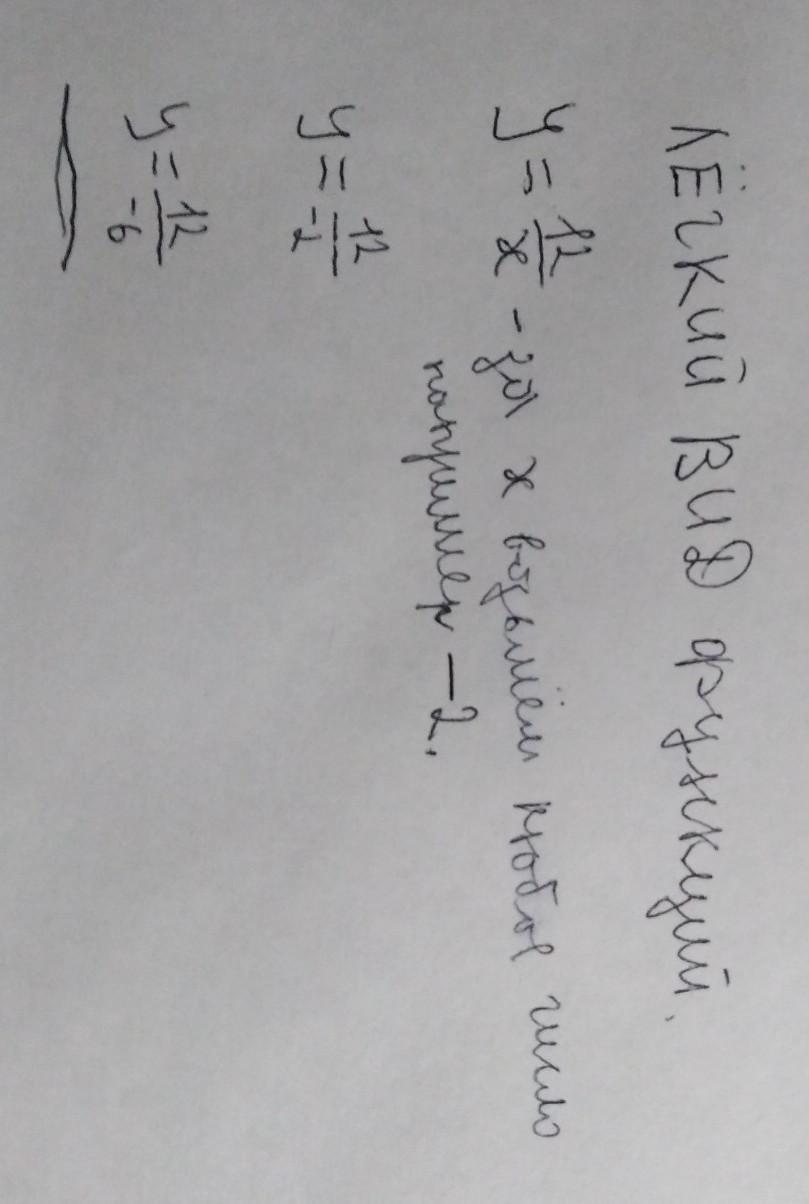 ЛЁГКИЙ ВИД функций.
y = 12/x - за x возьмём любое число
например -2.
y = 12/-2
y = 12/-6